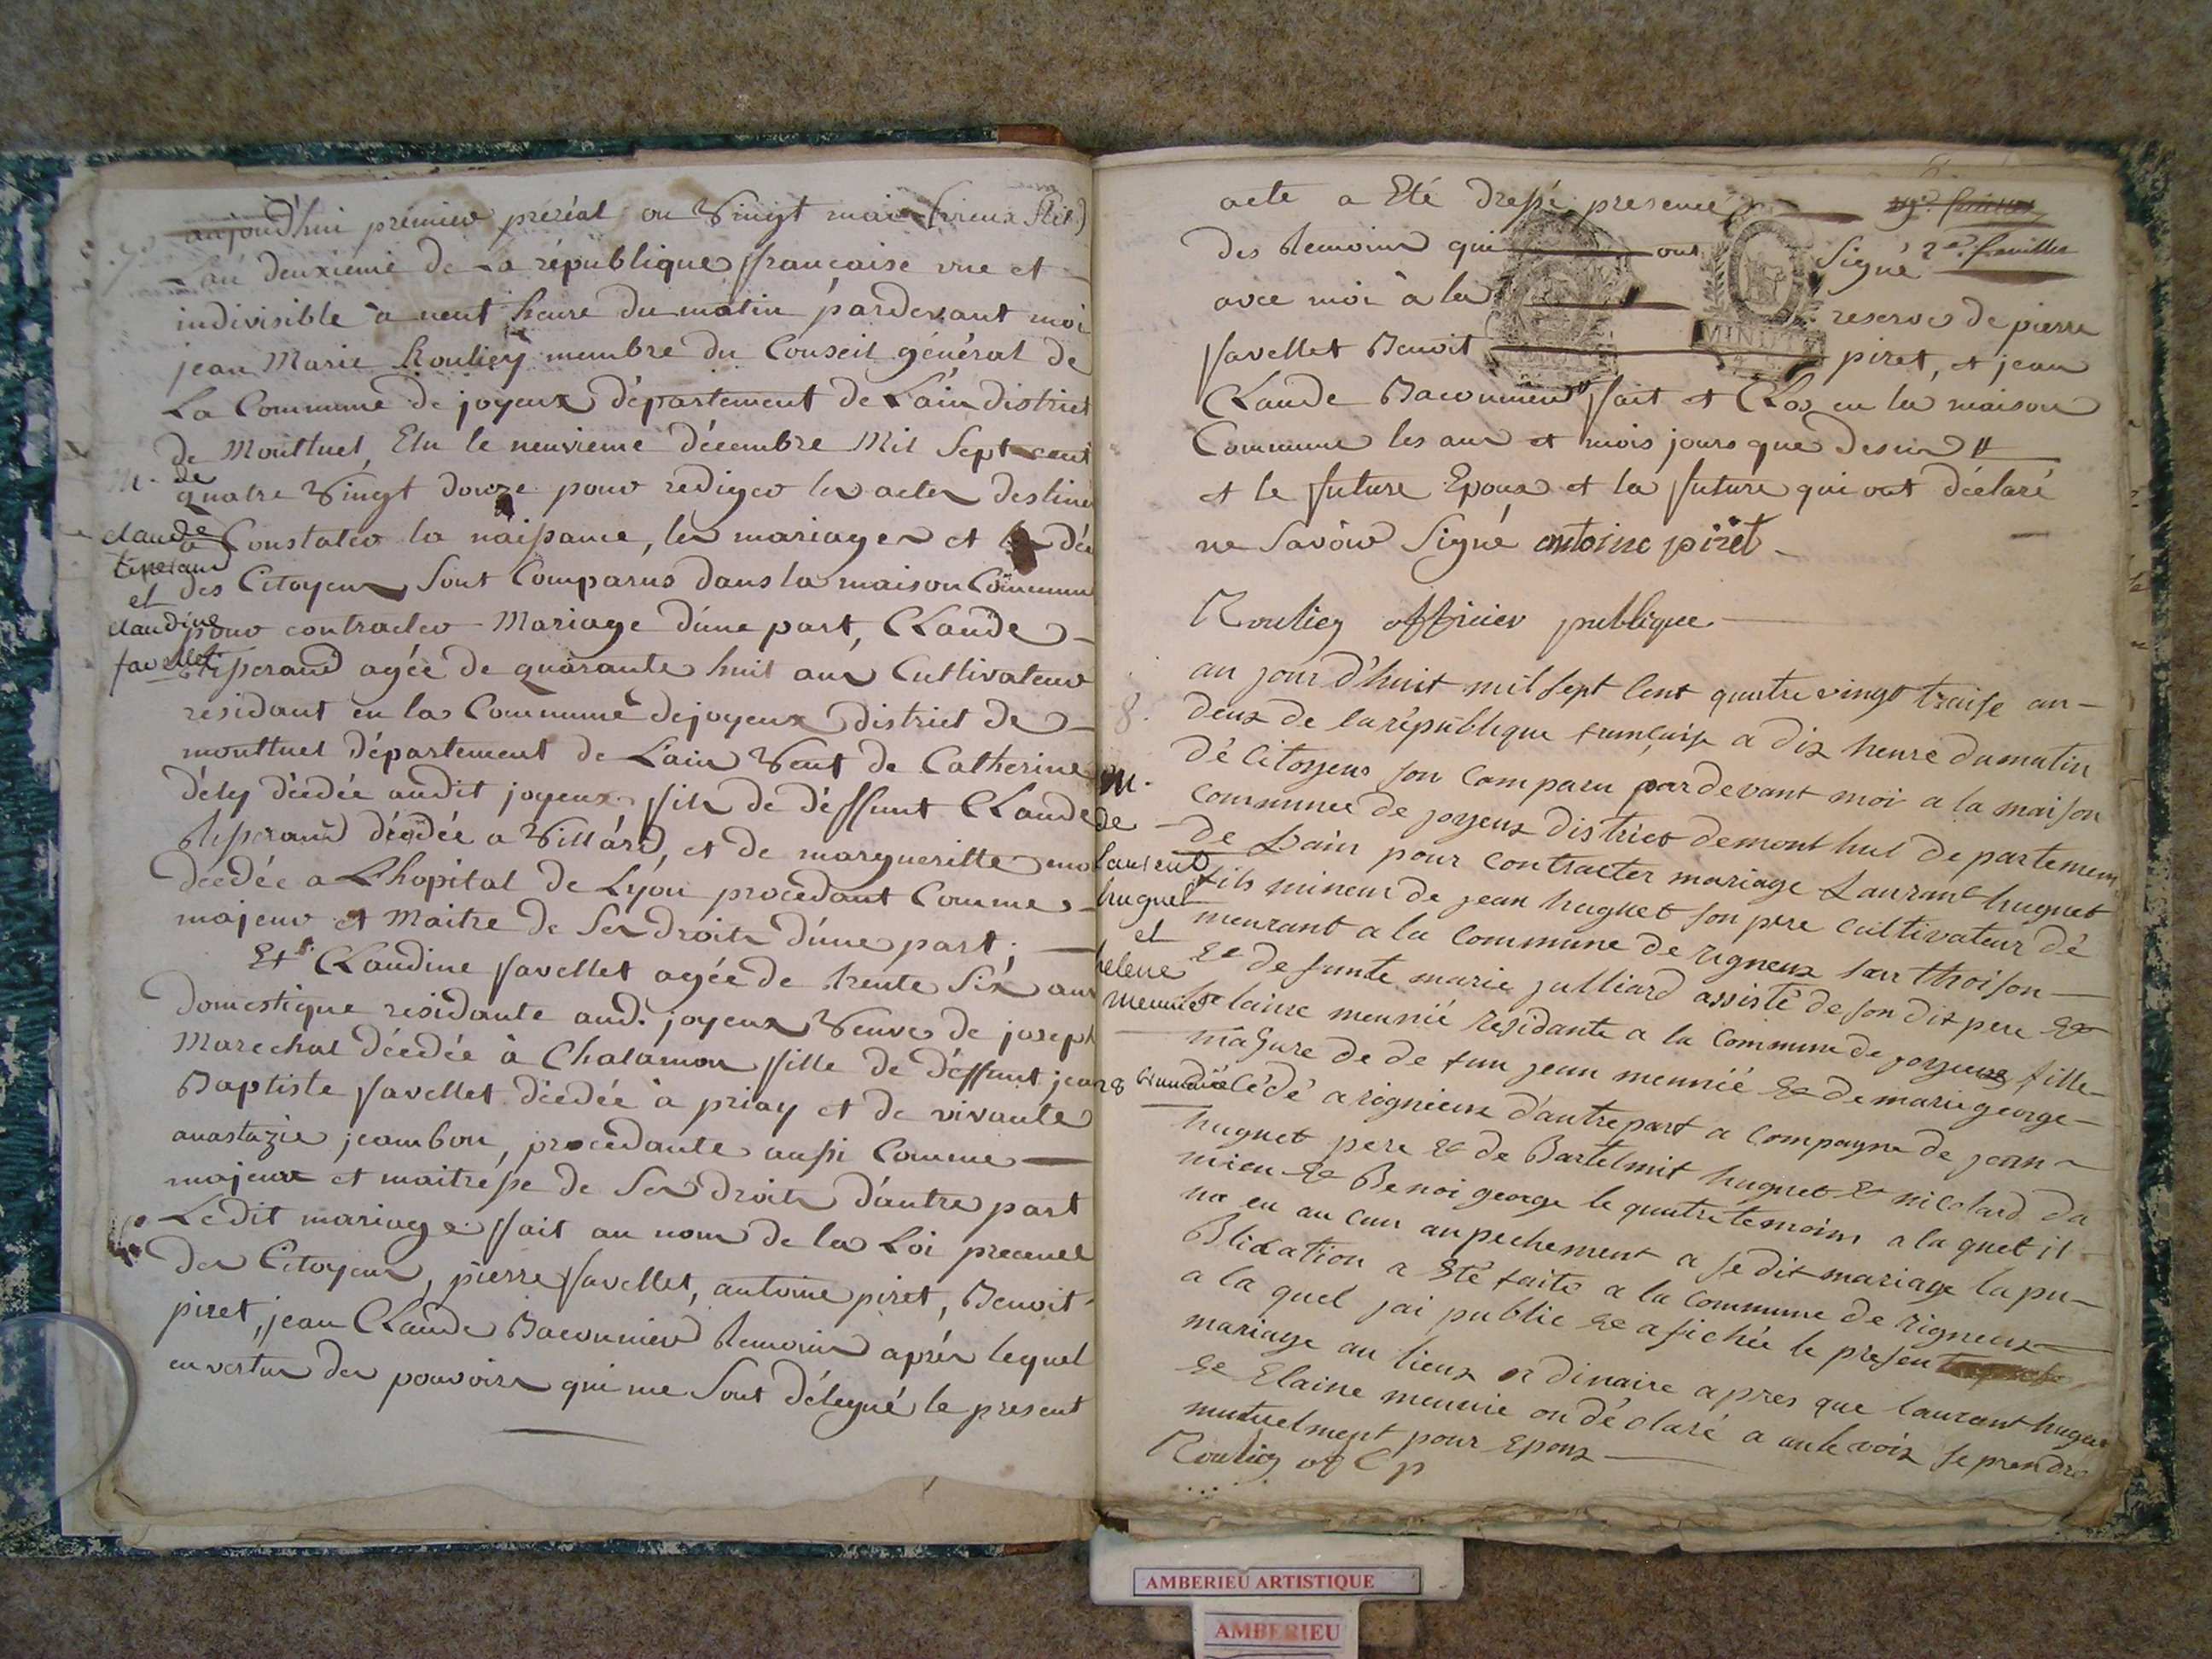 aujourd'hui prémier preréal ou vingt mai (vieux stil)
L'an deuxieme de La république francaise une et
indivisible a neuf heure du matin pardevant moi
jean Marie Rouliey membre du Conseil général de
La Commune de joyeux département de L'ain district
de Montluel, Elu le neuvieme décembre Mil Sept cent
quatre vingt douze pour rediger les actes destiné
a Constater la naissance, les mariages et les dé
des Citoyens sont Comparus dans la maison Commune
pour contracter Mariage d'une part, Claude
tisserand agée de quarante huit ans Cultivateur
résidant en la Commune de joyeux district de
montluel département de L'ain veuf de Catherine
dély décdée audit joyeux fils de déffunt Claude
tisserand décdée a Villard, et de marguerite
decdée a L'hopital de Lyon procedant Comme
majeur et Maitre de Ses droits d'une part;
Et Claudine favellet agée de trente Six ans
domestique residante aud. joyeux Veuve de joseph
Marechal décdée à Chalamon fille de déffunt jean
Baptiste favellet décdée à priay et de vivante
anastazie jeambon, procedante aussi Comme
majeur et maitrésse de Ses droits d'autre part
Ledit mariage fait au nom de la Loi presence
des Citoyens, pierre favellet, antoine piret, Benoit
piret, jean Claude Baconnier temoins aprés lequel
en vertu des pouvoirs qui me Sont délegué le present
M. de
claude
tiserand
et
claudine
favellet
acte a Eté dressé presence
2e. feuillet
des temoins qui ont Signé
avec moi à la reserve de pierre
favellet Benoit piret, et jean
MINUT
Claude Baconnier fait et Clos en la maison
Commune les ans et mois jours que desus
et le future Epoux et la future qui ont déclaré
ne Savoir Signé antoine piret
Rouliey officier publique
8.
au jour d'huit mil sept cent quatre vingt traise an
deux de la république francaise a dix heure du matin
dé Citoyens son Comparu par devant moi a la maison
commune de joyeux district de mont luel departement
de Lain pour contracter mariage Laurant huguet
fils mineur de jean huguet son pere cultivateur dé
meurant a la Commune de rigneux sur thoison
& de funte marie julliard assisté de son dit pere &
helaine meunié residante a la Commune de joyeux fille
majure de de fun jean meunié & de marie george
décédé a rignieux d'autre part a compagne de jean
huguet pere & de Bartelmit huguet & nicolard da
mien & Benoi george le quatre temoins a la quel il
na eu au cun anpechement a se dit mariage la pu
Blication a été faite a la Commune de rigneux
a la quel jai publié & afichée le presen
mariage au lieux or dinaire apres que laurant huguet
& Elaine meunie on dé claré a aute voix se prendre
mutuelment pour Epoux
Rouliey of C p
M.
de
Laurent
huguet
et
helene
meunier
AMBERIEU ARTISTIQUE
AMBERIEU